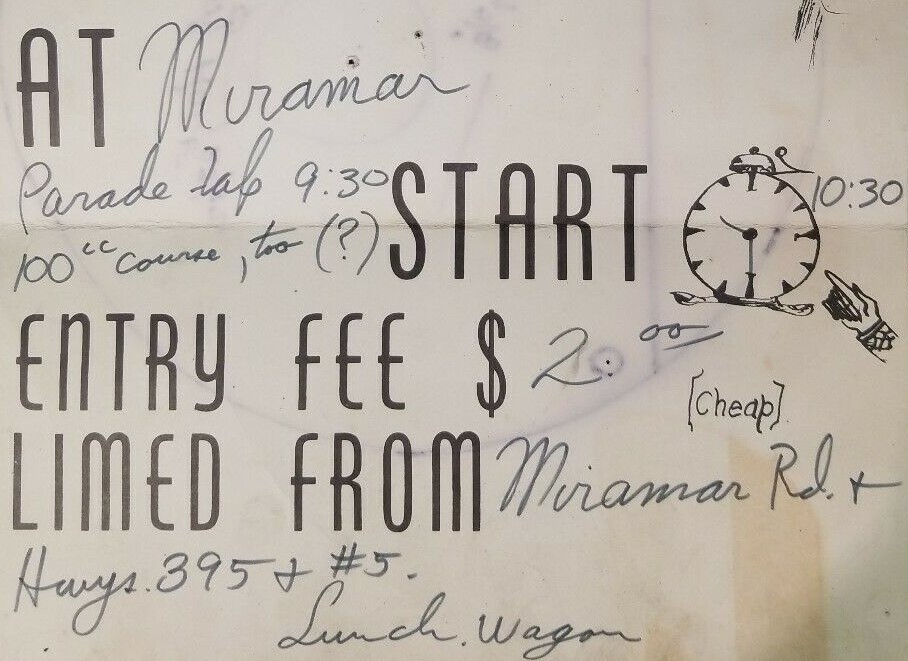 AT Miramar
Parade lap 9:30 START 10:30
100cc course, too (?)
ENTRY FEE $ 2.00
[Cheap]
LIMED FROM Miramar Rd. +
Hwys. 395 + #5.
Lunch Wagon